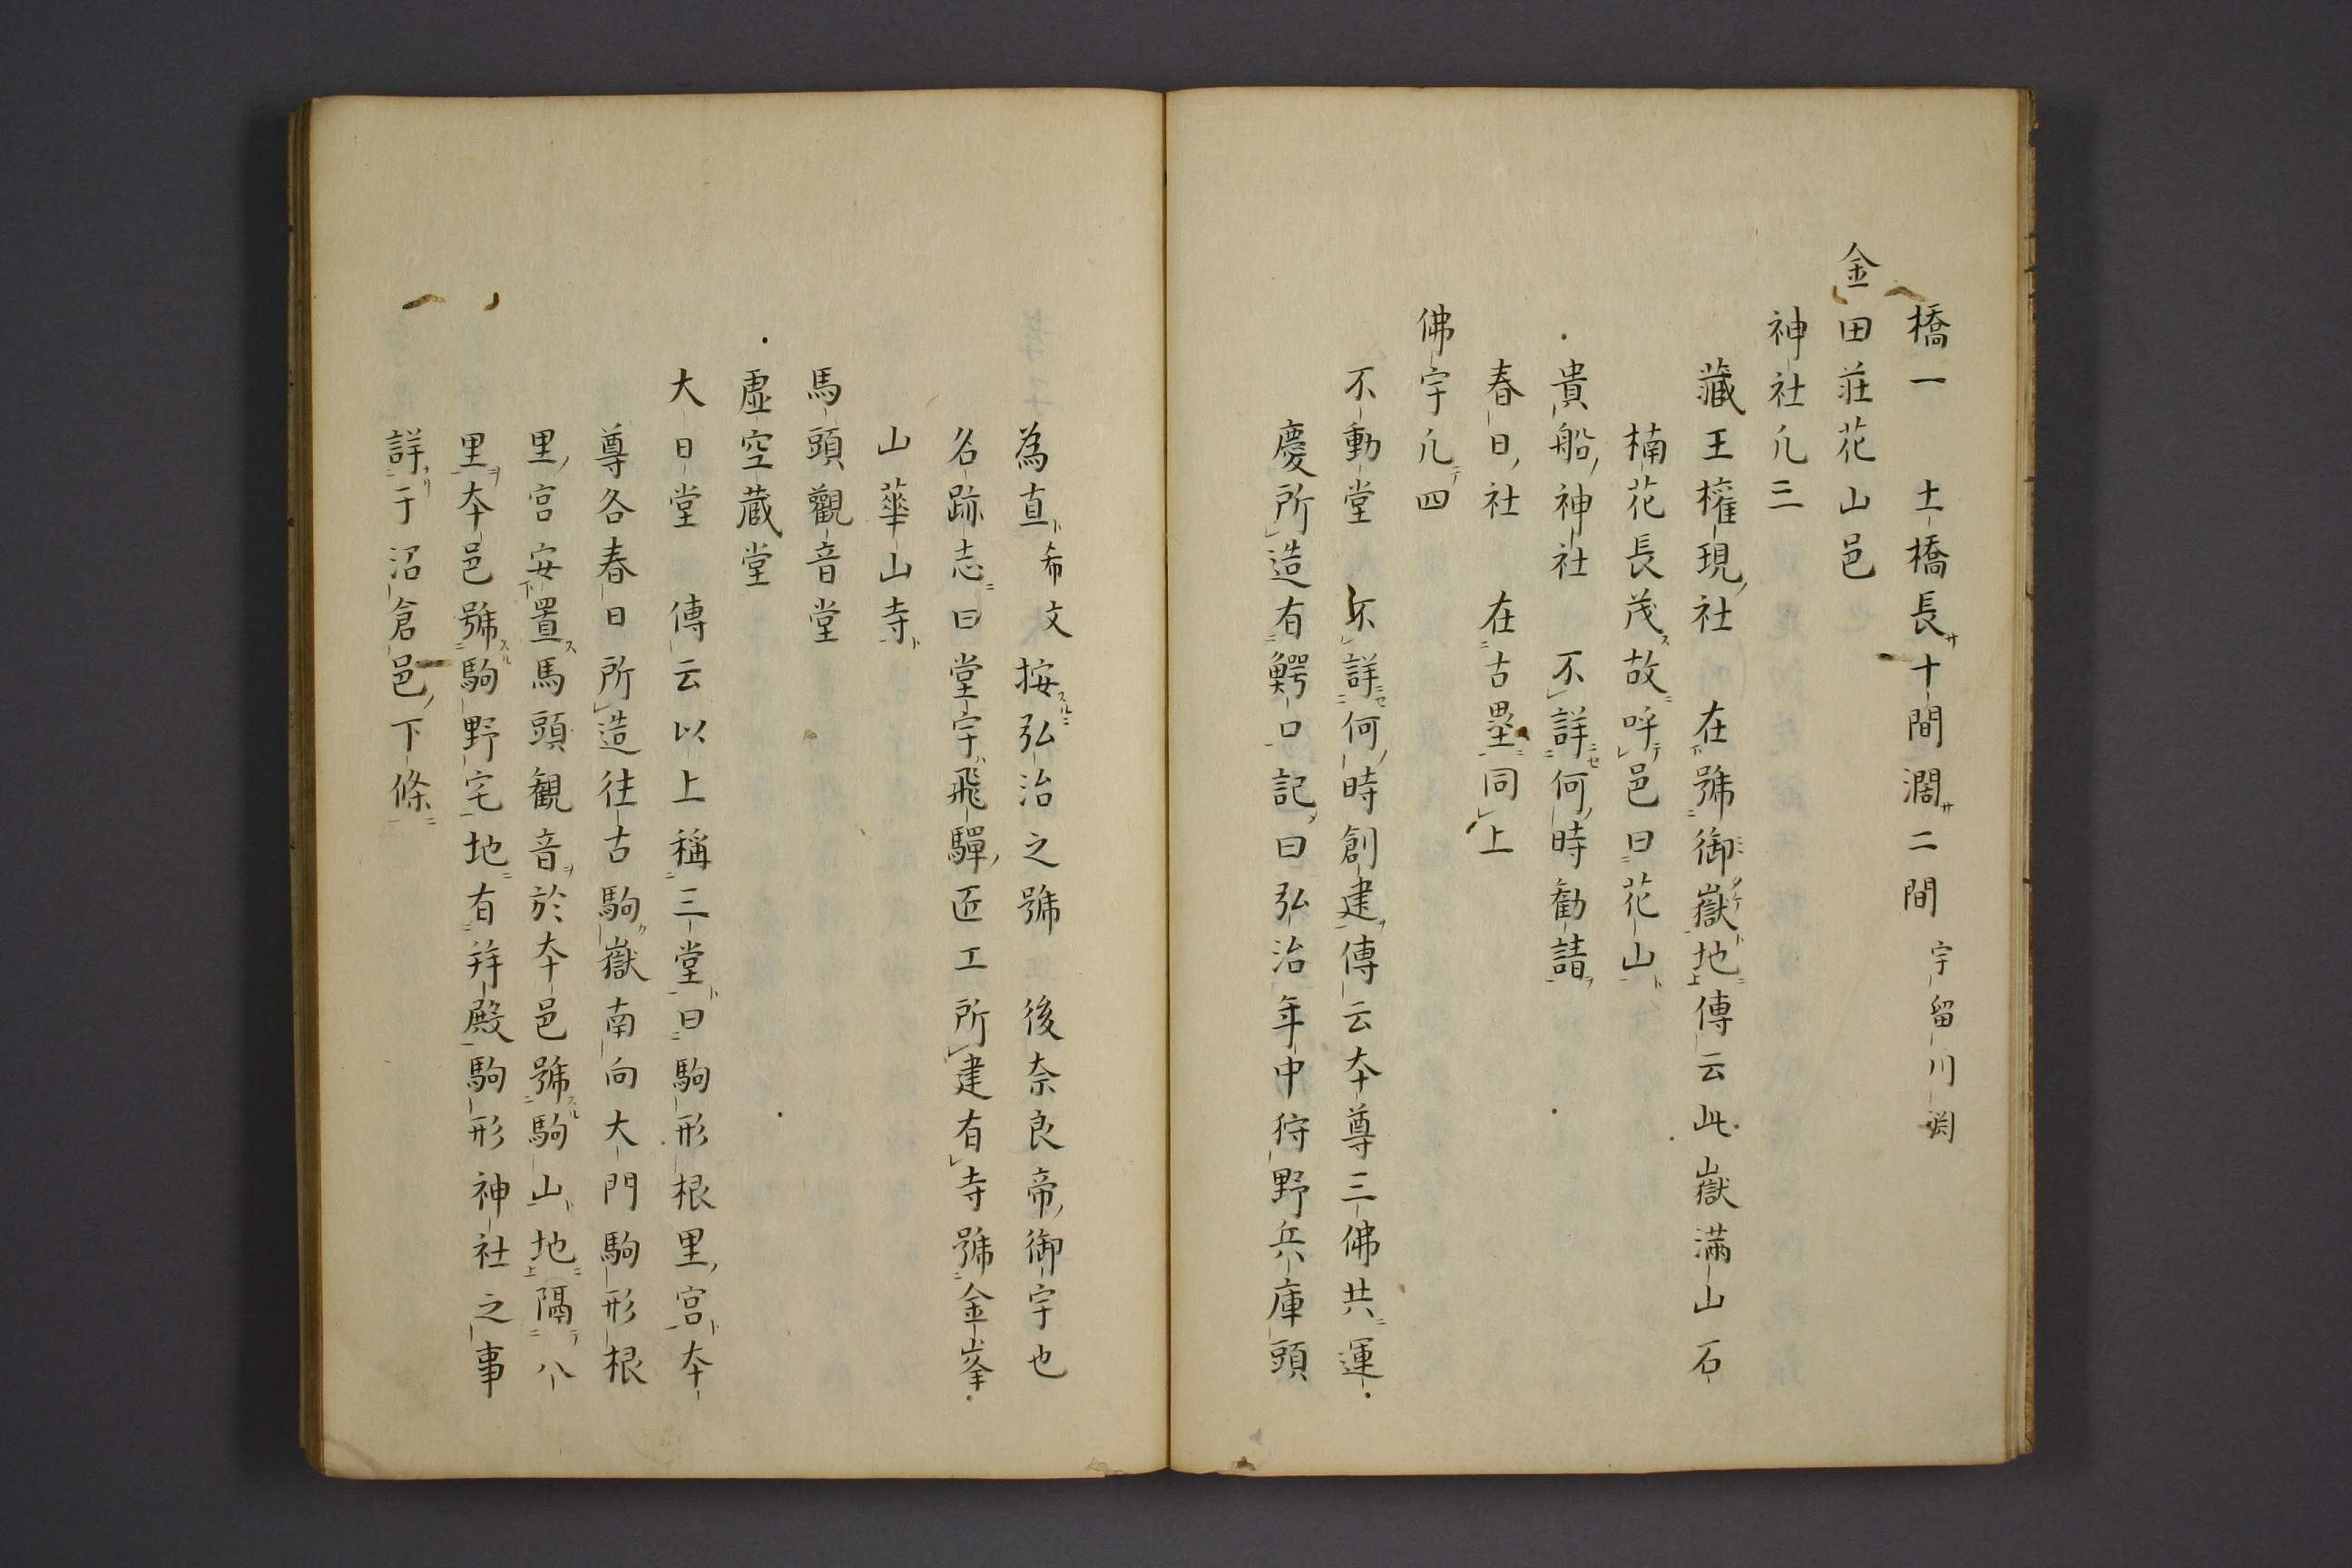 橋一　土橋長サ十間濶サ二間　宇留川渕
金田荘花山邑
神社凢三
藏王権現ノ社　在號御嶽地傳云此嶽滿山石
楠花長茂ス故ニ呼テ邑曰花山ト
貴船ノ神社　不詳何ノ時勧請
春日ノ社　在古壘同上
佛宇凢四
不動堂　不詳何ノ時創建傳云本尊三佛共ニ運
慶所造有鰐口記曰弘治年中狩野兵庫頭
為直ト希文按スルニ弘治之號　後奈良帝ノ御宇也
名跡志ニ曰堂宇ハ飛驒ノ匠工所建有寺號金峯
山華山寺ト
馬頭觀音堂
虚空蔵堂
大日堂　傳云以上稱三堂ト曰駒形根里ノ宮ト本
尊各春日所造往古駒ケ嶽南向大門駒形根
里ノ宮安置ス馬頭観音ヲ於本邑號スル駒山ト地ニ隔テ八
里ヲ本邑號スル駒野宅地ニ有拜殿駒形神社之事
詳ナリ于沼倉邑ノ下條ニ